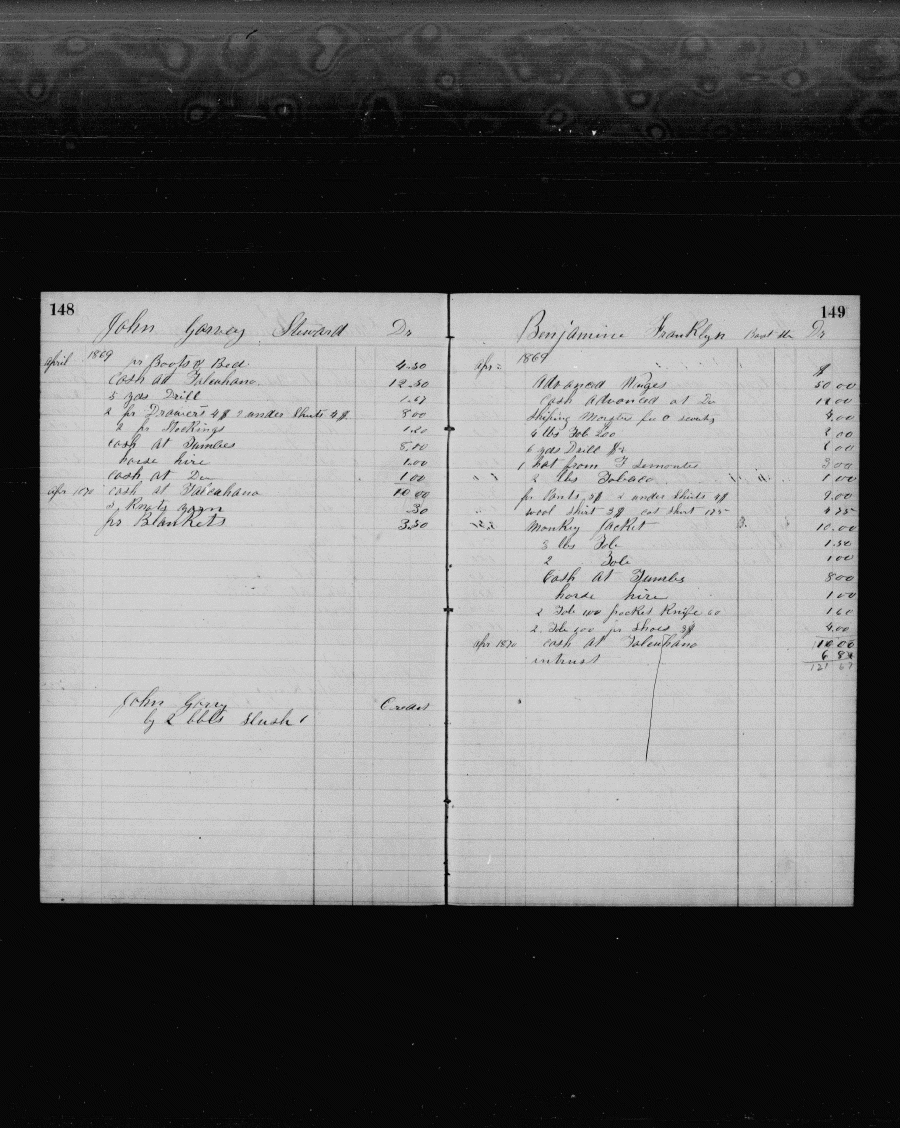 148
John Gorvey Steward Dr
April 1869 pr Boots & Bed 4.50
Cash at Talcuhano 12.50
5 yds Drill 1.67
2 pr Drawers 4$ 2 under Shirts 4$ 8.00
2 pr Stockings 1.20
Cash at Tumbes
horse hire 1.00
Cash at Do 1.00
Apr 1870 Cash at Talcahano 10.00
3 Knots yarn .30
pr Blankets 3.50
John Gorry Credit
by 2 bbls Slush
149
Benjamine Franklyn Boat Dr
Apr 1869 $
Advanced Wages 50.00
Cash advanced at Do
Shiping Master fee
4 lbs Tob 200 2.00
6 yds Drill
1 hat from F 3.00
" " 2 lbs Tobaco " " 1.00
pr Pants 2 under Shirts 4$ 9.00
wool Shirt 3$ cot Shirt 175 4.75
Monkey Jacket 10.00
3 lbs Tob 1.50
2 Tob 1.00
Cash at Tumbes 8.00
horse hire 1.00
2 Tob 100 pocket Knife 60 1.60
2 Tob 100 pr Shoes 3$ 4.00
Apr 1870 Cash at Talcuhano 10.00
intrust
121 67